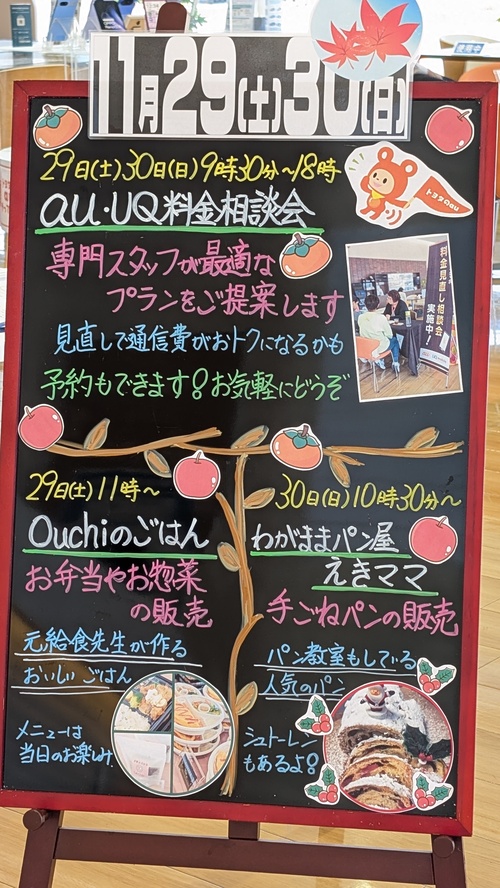 11月29(土)30(日)
29日(土)30日(日)9時30分~18時
au・UQ料金相談会
トヨタのau
専門スタッフが最適な
プランをご提案します
料金見直し相談会
実施中!
見直しで通信費がおトクになるかも
予約もできます!お気軽にどうぞ
29日(土)11時~
Ouchiのごはん
お弁当やお惣菜
の販売
元給食先生が作る
おいしいごはん
メニューは
当日のお楽しみ
30日(日)10時30分~
わがままパン屋
えきママ
手ごねパンの販売
パン教室もしている
人気のパン
シュトーレン
もあるよ!